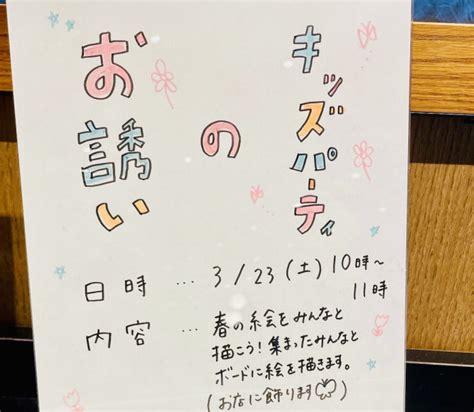 キッズパーティ
の
お誘い
日時 … 3/23(土)10時~
11時
内容 … 春の絵をみんなと
描こう!集まったみんなと
ボードに絵を描きます。
(お店に飾ります)